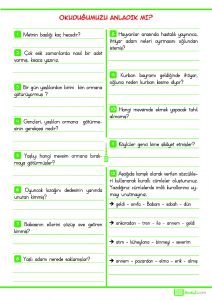 OKUDUĞUMUZU ANLADIK MI?
1 Metnin başlığı kaç hecedir?
2 Çok eski zamanlarda nasıl bir adet varmış, kısaca yazınız.
3 Bir gün yaşlılardan birini kim ormana götürüyormuş?
4 Gençleri, yaşlıları ormana götürmesinin gerekçesi nedir?
5 Yaşlıyı hangi mevsim ormana bırakmaya götürmüşler?
6 Oyuncak kızağını dedesinin yanında unutan kimmiş?
7 Babasının ellerini çözüp eve getiren kimmiş?
8 Yaşlı adam nerede saklamışlar?
9 Hayvanlar arasında hastalık yayılınca, ihtiyar adam neleri ayırmasını oğlundan istemiş?
11 Kurban bayramı geldiğinde ihtiyar, oğluna neden kurban kesme diyor?
12 Hangi mevsimde ekmek yapacak tahıl olmamış?
Köylüler genç kime şikâyet etmişler?
Aşağıda karışık olarak verilen sözcükleri kullanarak kurallı cümleler oluşturunuz. Yazdığınız cümlelerde imlâ kurallarına uymayı unutmayınız.
→ geldi - sınıfa - Babam - sabah - dün
→ ankaradan - tren - ile - annem - geldi
→ atını - küheylana - binmeyi - severim
→ annem - pazardan - elma - erik - almış